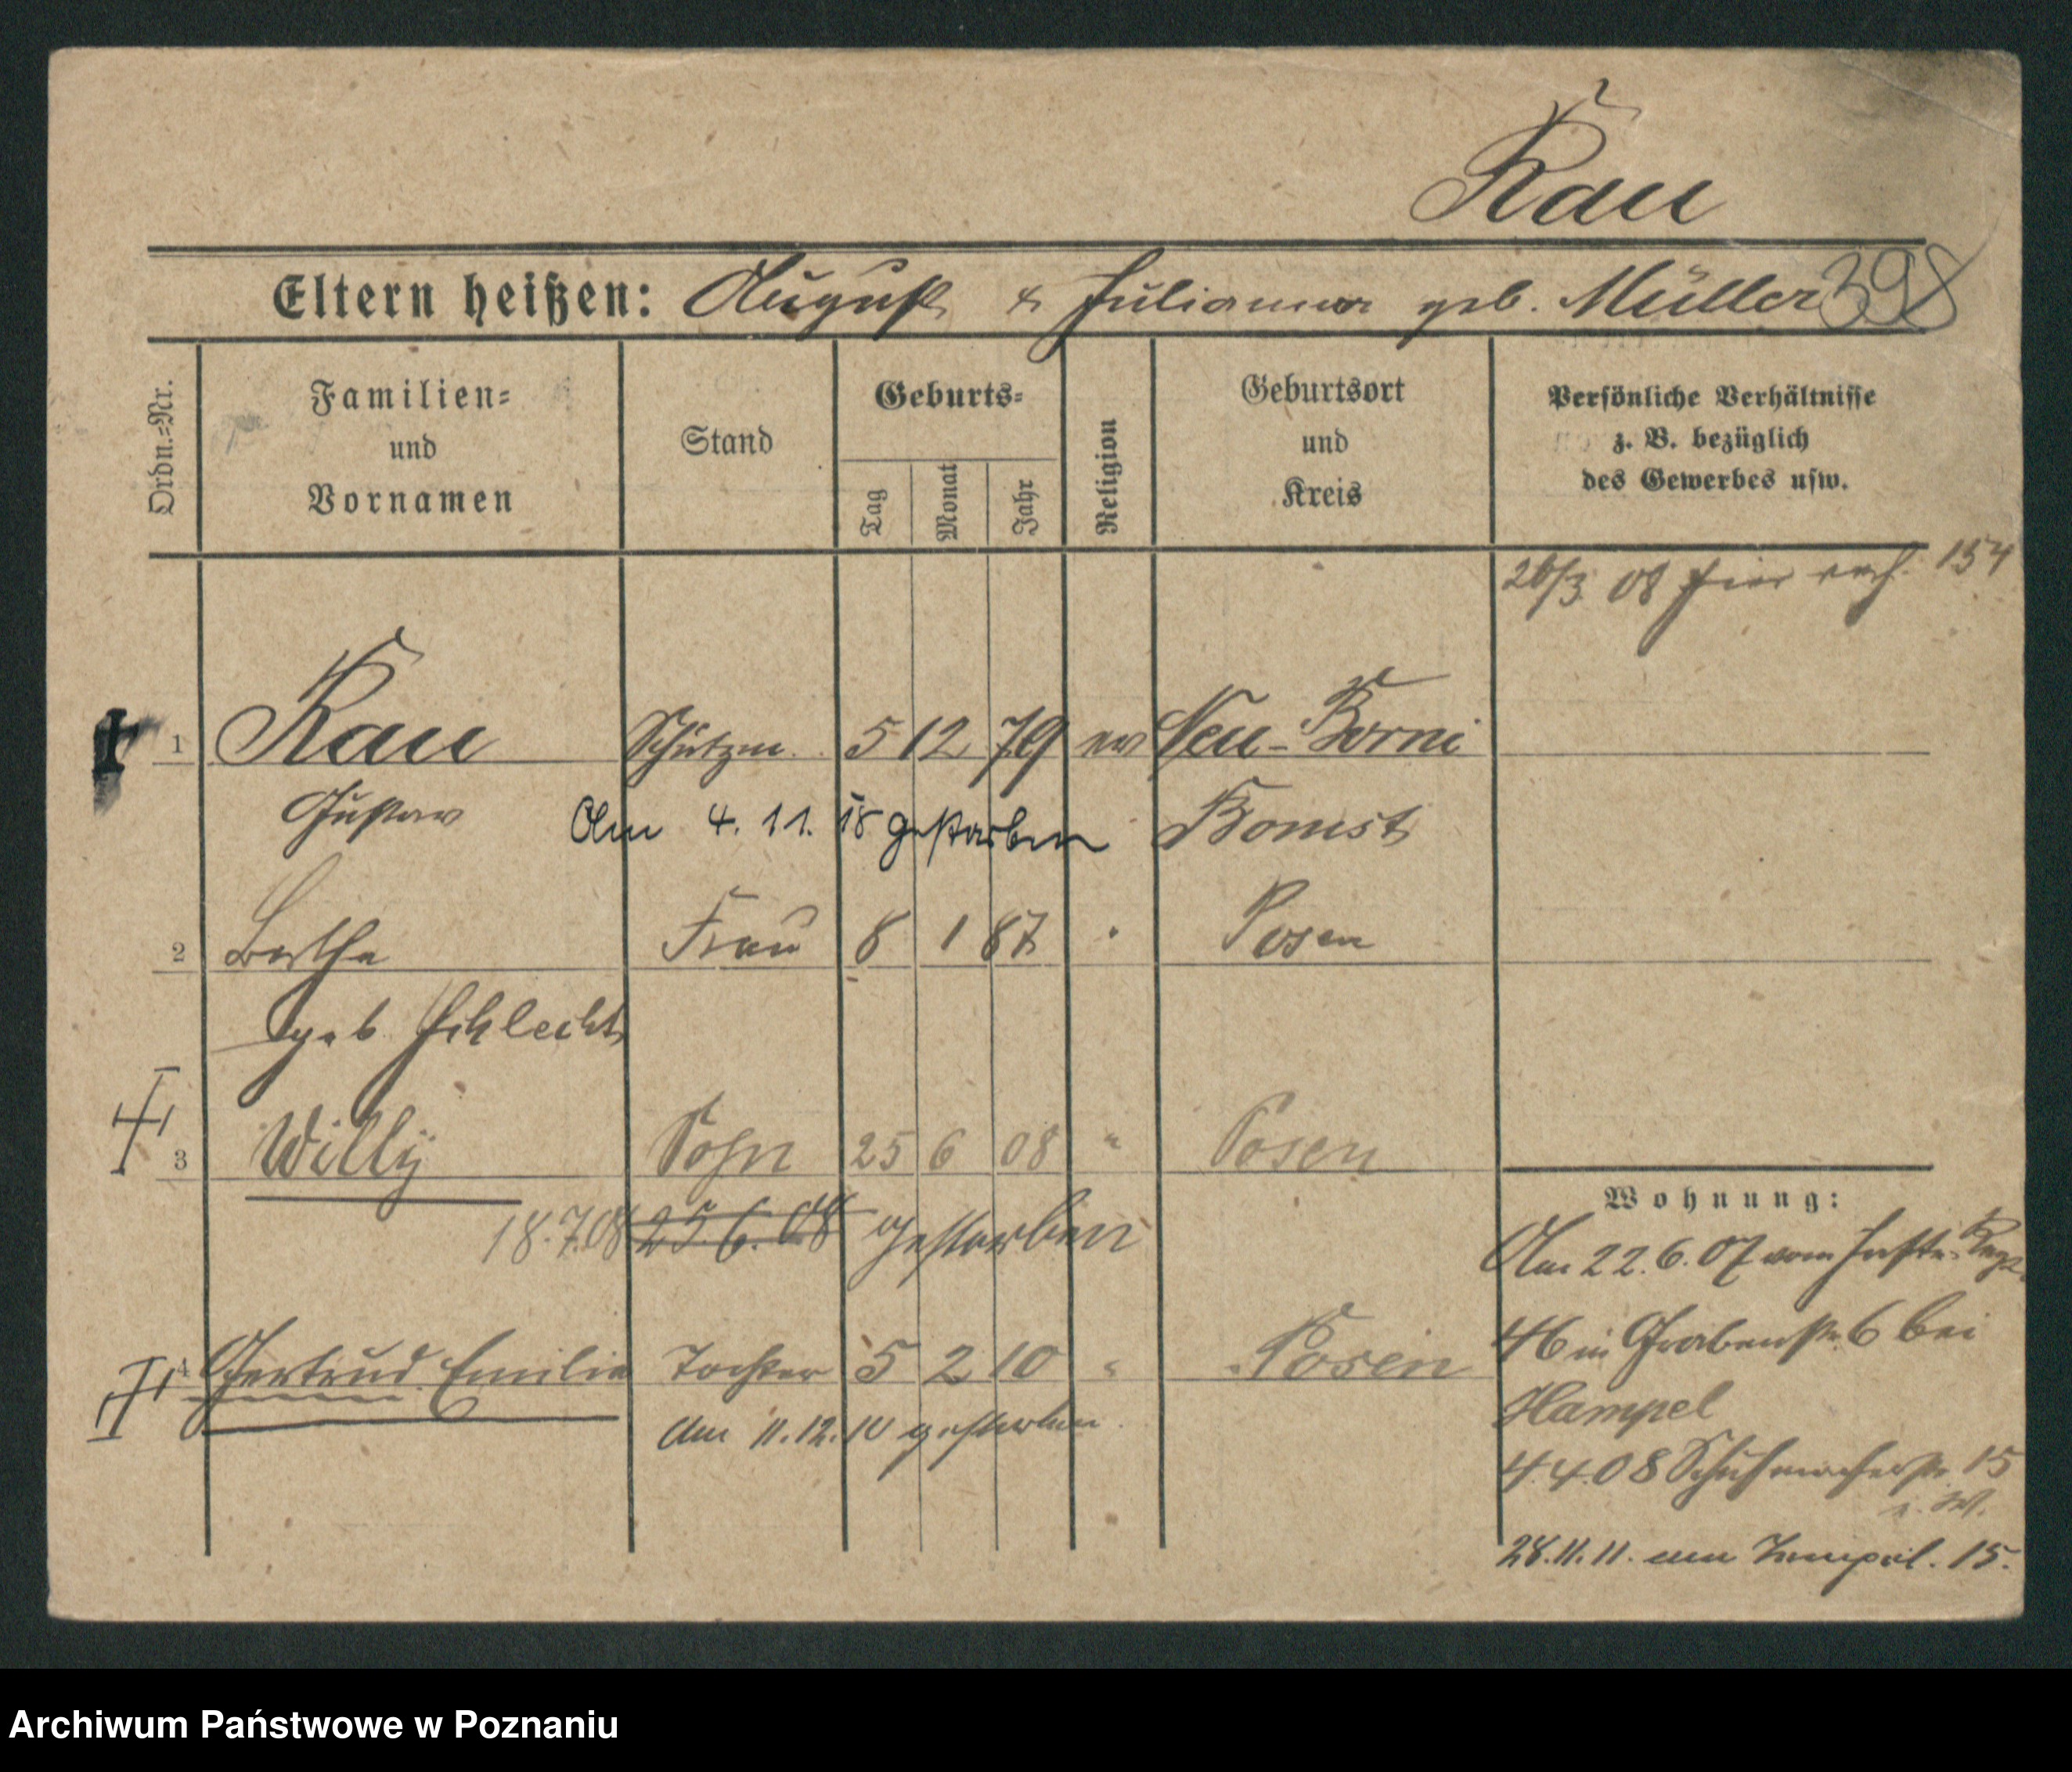 Rau
Eltern heißen: August & Julianna geb. Müller 398
Ordn.-Nr.
Familien- und Vornamen
Stand
Geburts-
Tag Monat Jahr
Religion
Geburtsort und Kreis
Persönliche Verhältnisse
z. B. bezüglich
des Gewerbes usw.
26/3 08 hier 154
1 Rau Schutzm. 5 12 79 ev Neu-Borni
Gustav Am 4. 11. 18 gestorben Bomst
2 Berthe Frau 8 1 87 " Posen
geb. Schlecht
3 Willy Sohn 25 6 08 " Posen
18.7.08 25.6.08 gestorben
4 Gertrud Emilie Tochter 5 2 10 " Posen
Am 11.12.10 gestorben
Wohnung:
Am 22.6.07 vom Inftr. Regt.
46 in Grabenstr. 6 bei
Hampel
4.4.08 Schuhmacherstr 15
i. W.
28.11.11. 15.
Archiwum Państwowe w Poznaniu